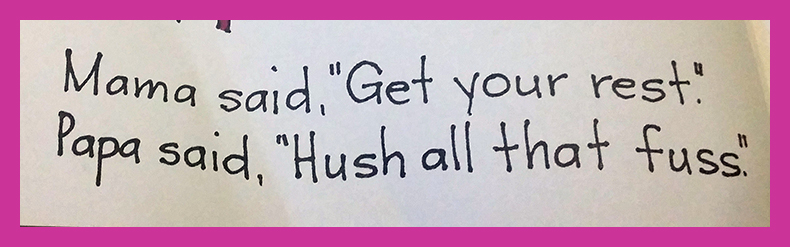 Mama said, "Get your rest."
Papa said, "Hush all that fuss."